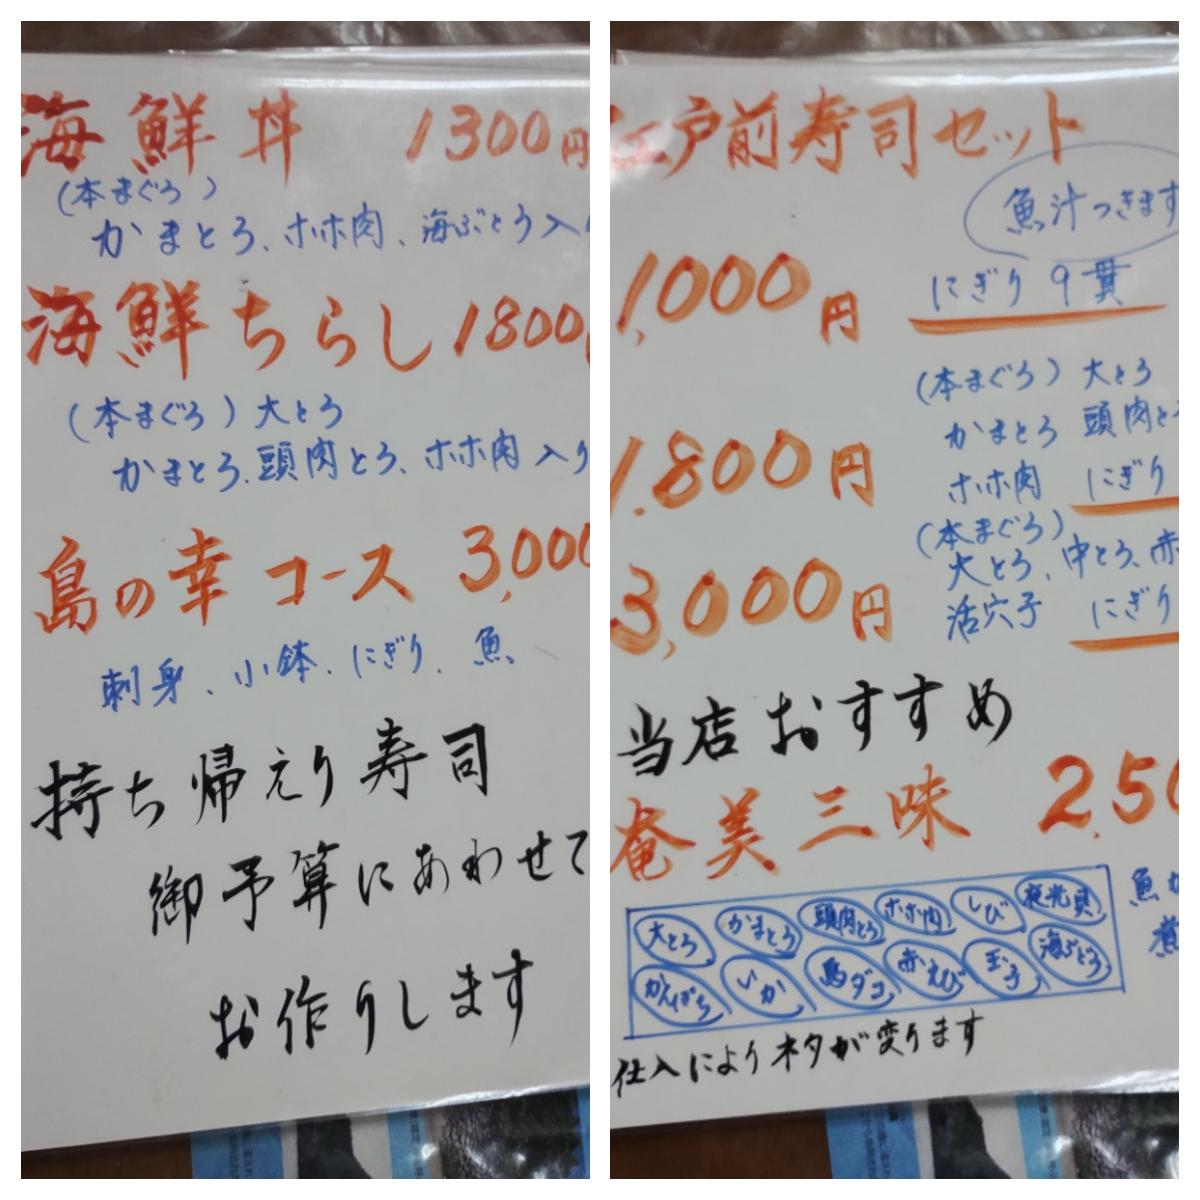 海鮮丼 1300円
(本まぐろ)
かまとろ、ホホ肉、海ぶとう入り
海鮮ちらし 1800
(本まぐろ)大とろ
かまとろ、頭肉とろ、ホホ肉入り
島の幸コース 3,000
刺身、小鉢、にぎり、魚
持ち帰えり寿司
御予算にあわせて
お作りします
江戸前寿司セット
魚汁つきます
1,000円 にぎり9貫
(本まぐろ)大とろ
かまとろ 頭肉とろ
1.800円 ホホ肉 にぎり
(本まぐろ)
大とろ、中とろ、赤
3,000円 活穴子 にぎり
当店おすすめ
奄美三味 2,50
大とろ かまとろ 頭肉とろ ホホ肉 しび 夜光貝
かんぱち いか 島ダコ 赤えび 玉子 海ぶどう
魚か
煮
仕入によりネタが変ります